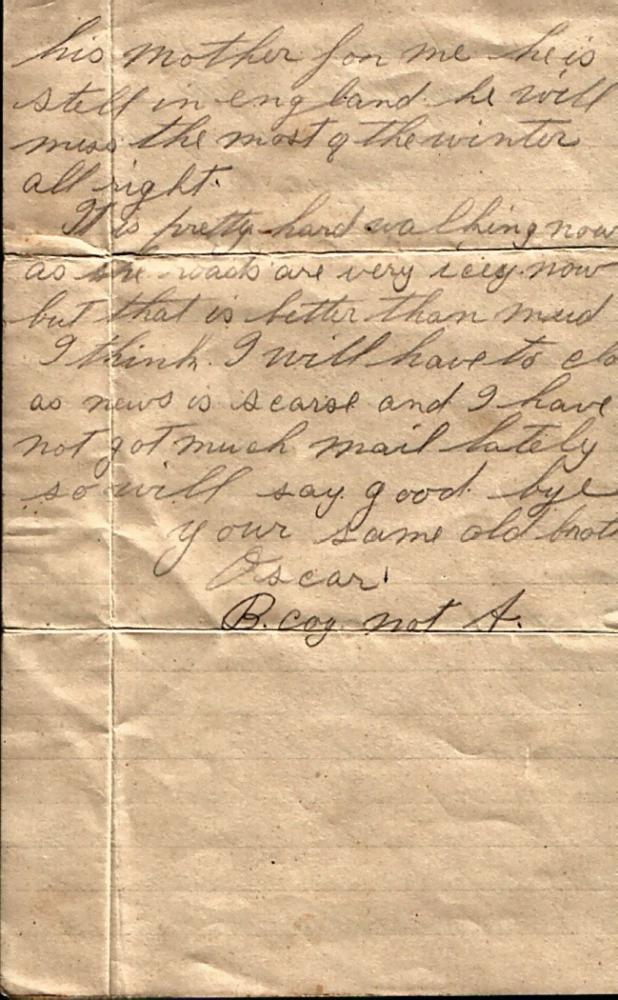 his mother for me he is
still in england he will
miss the most of the winter
all right.
It is pretty hard walking now
as the roads are very icey now
but that is better than mud
I think. I will have to clo
as news is scarse and I have
not got much mail lately
so will say good bye
your same old broth
Oscar
B. coy not A.